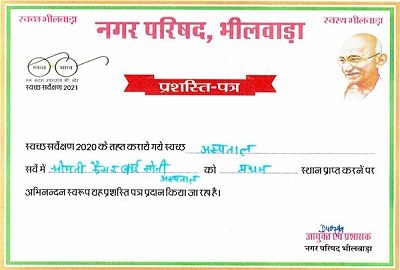 स्वच्छ भीलवाड़ा
स्वस्थ भीलवाड़ा
नगर परिषद, भीलवाड़ा
स्वच्छ भारत
एक कदम स्वच्छता की ओर
स्वच्छ सर्वेक्षण 2021
प्रशस्ति-पत्र
स्वच्छ सर्वेक्षण 2020 के तहत कराये गये स्वच्छ अस्पताल
सर्वे में श्रीमती केसर बाई सोनी अस्पताल को प्रथम स्थान प्राप्त करने पर
अभिनन्दन स्वरूप यह प्रशस्ति पत्र प्रदान किया जा रहा है।
आयुक्त एवं प्रशासक
नगर परिषद भीलवाड़ा